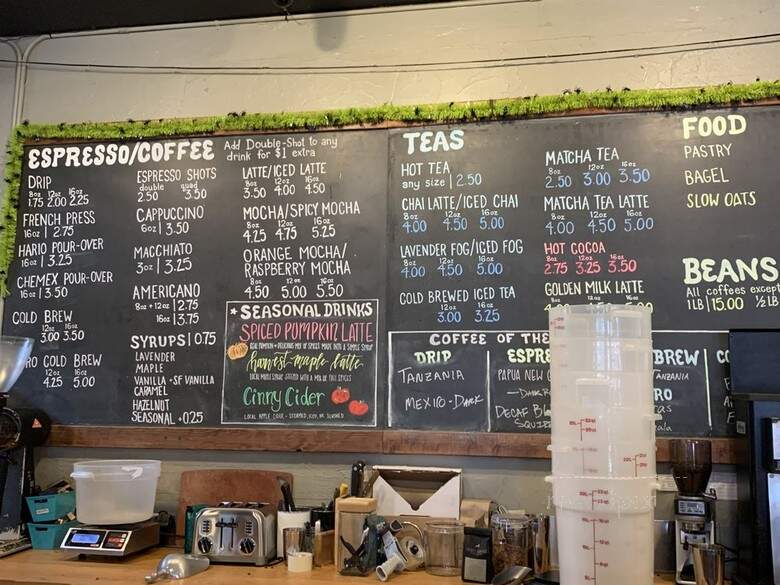 ESPRESSO/COFFEE
Add Double-Shot to any
drink for $1 extra
DRIP
8oz 12oz 16oz
1.75 2.00 2.25
FRENCH PRESS
16oz | 2.75
HARIO POUR-OVER
16oz | 3.25
CHEMEX POUR-OVER
16oz | 3.50
COLD BREW
12oz 16oz
3.00 3.50
RO COLD BREW
12oz 16oz
4.25 5.00
ESPRESSO SHOTS
double quad
2.50 3.50
CAPPUCCINO
6oz | 3.50
MACCHIATO
3oz | 3.25
AMERICANO
8oz + 12oz | 2.75
16oz | 3.75
SYRUPS | 0.75
LAVENDER
MAPLE
VANILLA + SF VANILLA
CARAMEL
HAZELNUT
SEASONAL +0.25
LATTE/ICED LATTE
8oz 12oz 16oz
3.50 4.00 4.50
MOCHA/SPICY MOCHA
8oz 12oz 16oz
4.25 4.75 5.25
ORANGE MOCHA/
RASPBERRY MOCHA
8oz 12oz 16oz
4.50 5.00 5.50
SEASONAL DRINKS
SPICED PUMPKIN LATTE
harvest-maple-latte
Cinny Cider
TEAS
HOT TEA
any size | 2.50
CHAI LATTE/ICED CHAI
8oz 12oz 16oz
4.00 4.50 5.00
LAVENDER FOG/ICED FOG
8oz 12oz 16oz
4.00 4.50 5.00
COLD BREWED ICED TEA
12oz 16oz
3.00 3.25
MATCHA TEA
8oz 12oz 16oz
2.50 3.00 3.50
MATCHA TEA LATTE
8oz 12oz 16oz
4.00 4.50 5.00
HOT COCOA
8oz 12oz 16oz
2.75 3.25 3.50
GOLDEN MILK LATTE
8oz 12oz 16oz
FOOD
PASTRY
BAGEL
SLOW OATS
BEANS
All coffees except
1LB | 15.00 ½ LB
COFFEE OF THE
DRIP
TANZANIA
MEXICO - DARK
ESPRE
PAPUA NEW
DECAF
BREW
TANZANIA
RO